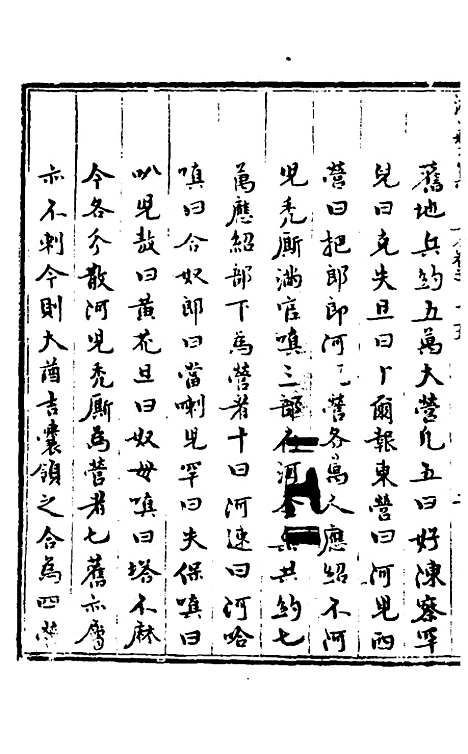 舊地兵約五萬大營凡五曰好陳察罕
兒曰克失旦曰卜爾報東營曰阿兒西
營曰把郎郎阿兒營各萬人應紹不河
兒禿廝滿官嗔三部在河合共約七
萬應紹部下為營者十曰阿速曰阿哈
嗔曰合奴郎曰當喇兒罕曰失保嗔曰
叭兒敖曰黃花旦曰奴毋嗔曰塔不麻
今各分散河兒禿廝為營者七舊亦屬
亦不剌今則大酋吉囊領之合為四營